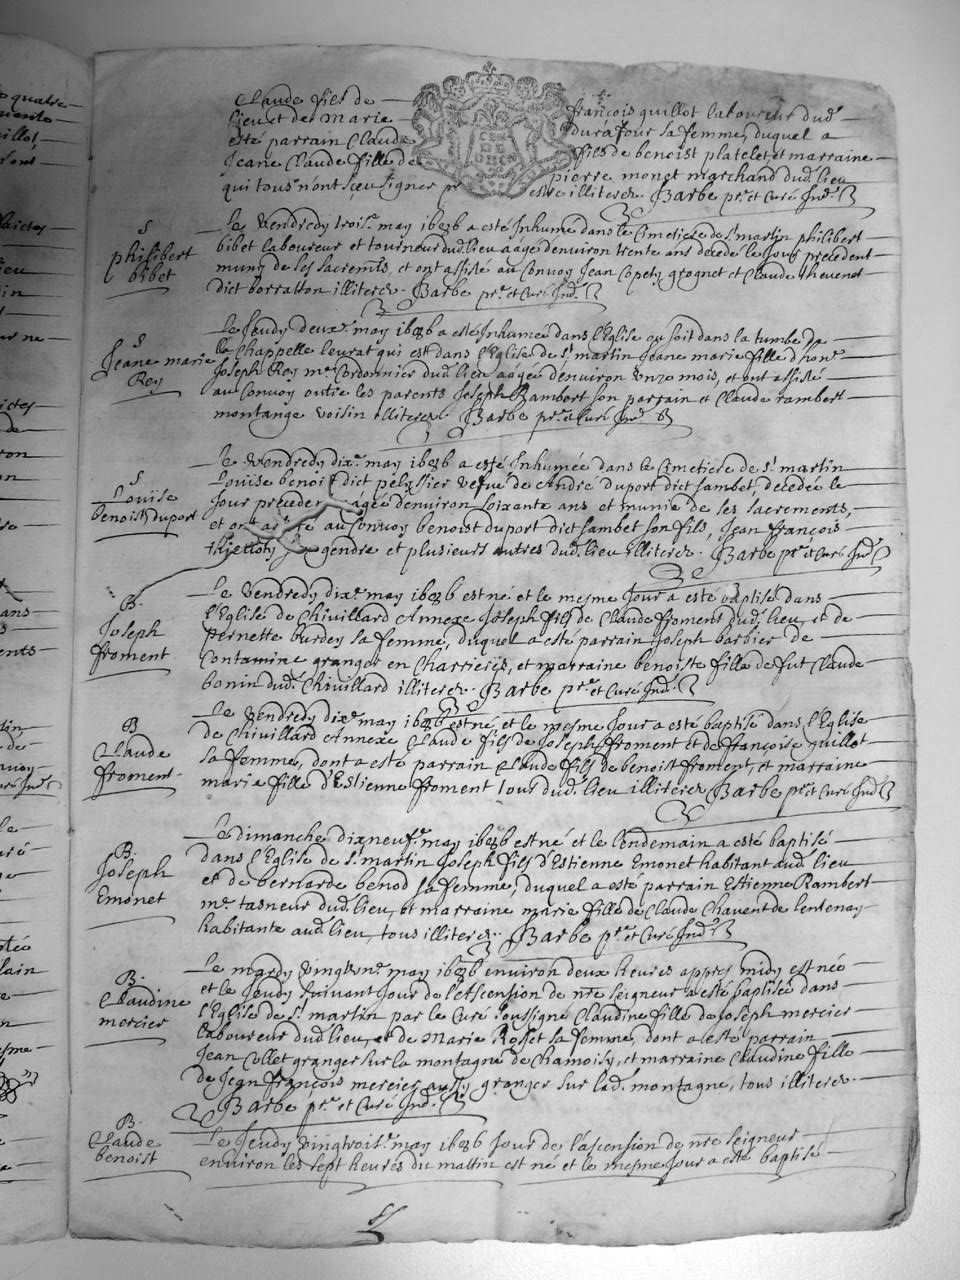 Claude fils de françois quillot laboureur dud.
lieu et de Marie durafour sa femme, duquel a
esté parrain Claude fils de benoist platelet, et marraine
Jeane Claude fille de pierre monet marchand dud. lieu
qui tous n'ont sceu signer estre illiterez. Barbe pr. et Curé Ind.
S
philibert
bibet
Le Vendredy trois.e may 1686 a esté Inhumé dans le Cimetiere de St martin philibert
bibet laboureur et tourneur dud. lieu aagé d'environ trente ans decedé le Jour precedent
muny de ses sacremts, et ont assisté au Convoy Jean Copety grognet et Claude thevenet
dict borratton illiterez. Barbe pr. et Curé Ind.
S
Jeane marie
Rey
Le Jeudy deux.e may 1686 a esté Inhumée dans l'Eglise ou soit dans la tumbe de
la Chappelle leurat qui est dans l'Eglise de St martin Jeane marie fille d'hon.
Joseph Rey me Cordonnier dud. lieu aagée d'environ Unze mois, et ont assisté
au Convoy outre les parents Joseph Rambert son parrain et Claude rambert
montange voisin illiterez. Barbe pr. et Curé Ind.
S
Louise
benoist duport
Le Vendredy dix.e may 1686 a esté Inhumée dans le Cimetiere de St martin
Louise benoist dict pelissier vefve de André duport dict Jambet, decedée le
Jour preceder aagée d'environ soixante ans et munie de ses sacrements,
et ont au Convoy benoist duport dict Jambet son fils, Jean françois
gendre et plusieurs autres dud. lieu illiterez. Barbe pr. et Curé Ind.
B.
Joseph
froment
Le Vendredy dix.e may 1686 est né et le mesme Jour a esté baptisé dans
l'Eglise de Chivillard Annexe Joseph fils de Claude froment dud. lieu, et de
Pernette burdey sa femme, duquel a esté parrain Joseph barbier de
Contamine granger en Charrieriis, et marraine benoiste fille de fut Claude
bonin dud. Chivillard illiterez. Barbe pr. et Curé Ind.
B
Claude
froment.
Le Vendredy dix.e may 1686 est né, et le mesme Jour a esté baptisé dans l'Eglise
de Chivillard Annexe Claude fils de Joseph froment et de françoise quillot
sa femme, dont a esté parrain Claude fils de benoist froment, et marraine
marie fille d'Estienne froment tous dud. lieu illiterez Barbe pr. et Curé Ind.
B.
Joseph
Emonet
Le dimanche dixneuf.e may 1686 est né et le lendemain a esté baptisé
dans l'Eglise de St martin Joseph fils d'Estienne Emonet habitant aud. lieu
et de bernarde benod sa femme, duquel a esté parrain Estienne Rambert
me tasneur dud. lieu, et marraine marie fille de Claude Chavent de lentenay
habitante aud. lieu, tous illiterez. Barbe pr. et Curé Ind.
B.
Claudine
mercier
Le mardy vingtun.e may 1686 environ deux heures appres midy est née
et le Jeudy suivant Jour de l'Ascension de nre seigneur a esté baptisée dans
l'Eglise de St martin par le Curé soussigné Claudine fille de Joseph mercier
laboureur dud. lieu, et de Marie Rosset sa femme, dont a esté parrain
Jean Collet granger sur la montagne de Chamoisy, et marraine Claudine fille
de Jean françois mercier aussy granger sur lad. montagne, tous illiterez.
Barbe pr. et Curé Ind.
B.
Claude
benoist
Le Jeudy vingtrois.e may 1686 Jour de l'ascension de nre seigneur
environ les sept heures du mattin est né et le mesme Jour a esté baptisé